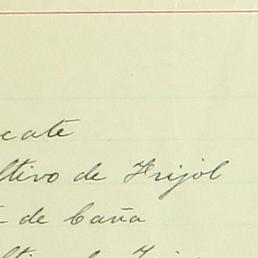 cate
ltivo de Frijol
de Caña
ltivo de Frijo